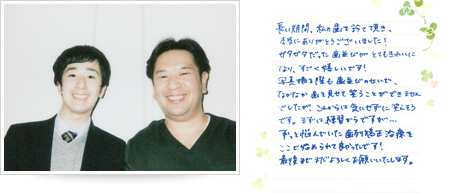 長い期間、私の歯を診て頂き、
本当にありがとうございました!
ガタガタだった歯並びが とてもきれいに
なり、すごく嬉しいです!
写真撮る際も 歯並びのせいで、
なかなか歯を見せて笑うことができません
でしたが、これからは気にせずに笑えそう
です。まずは練習からですが…
ずっと悩んでいた歯列矯正治療を
ここで始められて良かったです!
最後までよろしくお願いいたします。